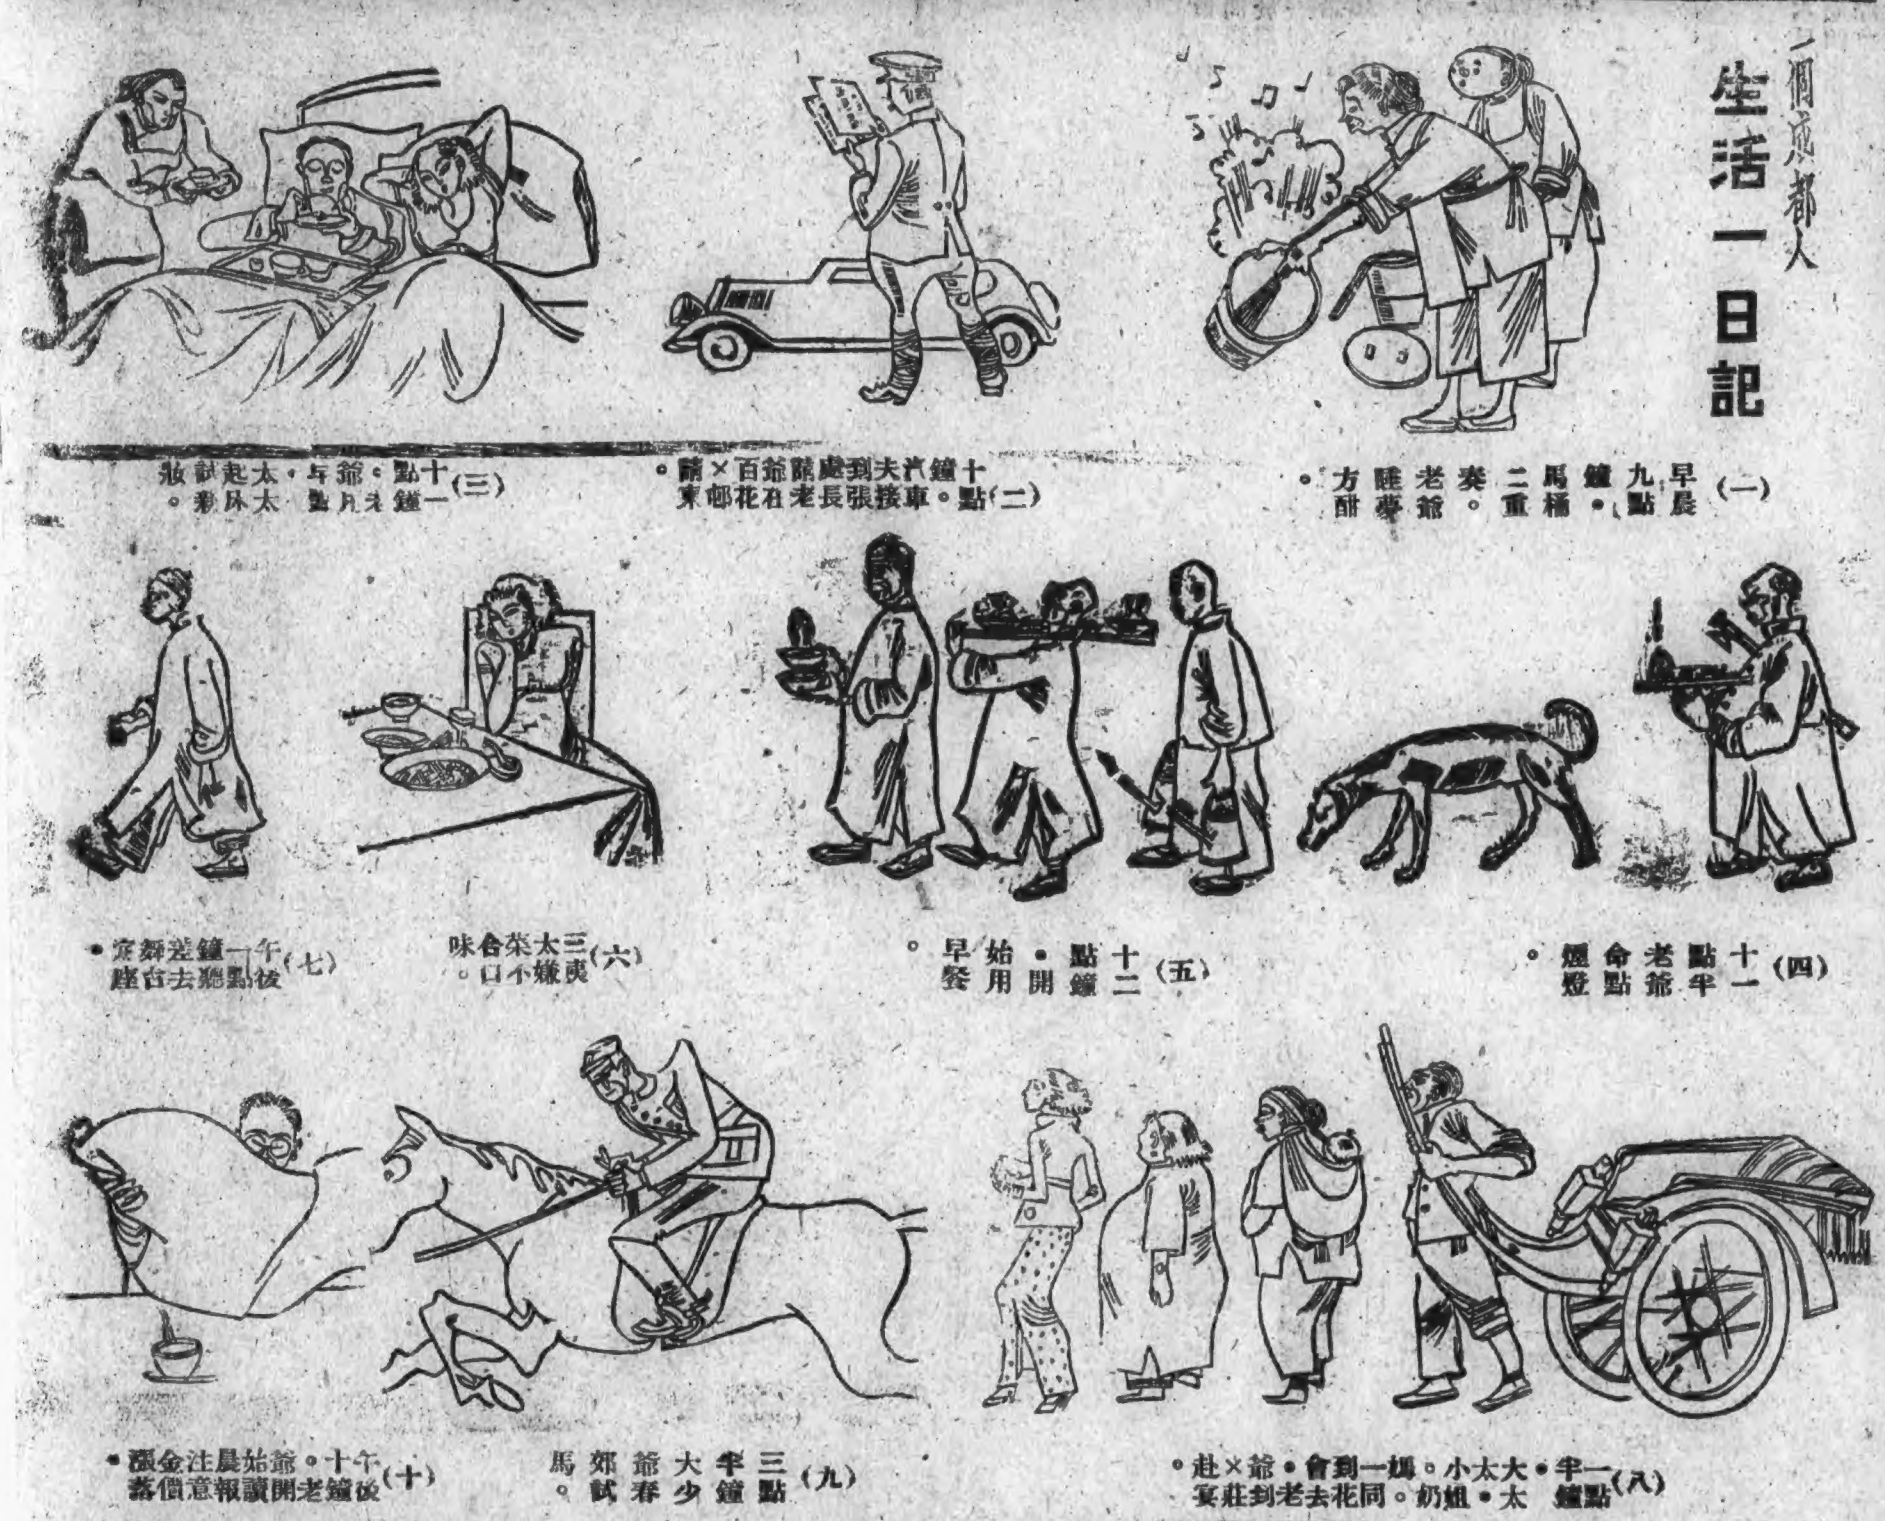 一個成都人
生活一日記
(一)早晨九點鐘•馬桶二重奏。老爺睡夢方酣。
(二)十點鐘。汽車夫接到張處長請老爺在百花×邨請東。
(三)十一點鐘。老爺用早點。太太起床試新妝。
(四)十一點半老爺命點煙燈。
(五)十二點鐘•開始用早餐。
(六)三姨太嫌菜不合口味。
(七)午後一點鐘聽差去舞台定座•
(八)一點半鐘•大太太•小姐。奶媽。一同到花會去•老爺到×莊赴宴。
(九)三點半鐘大少爺春郊試馬。
(十)午後十鐘。老爺開始讀晨報注意金價漲落•